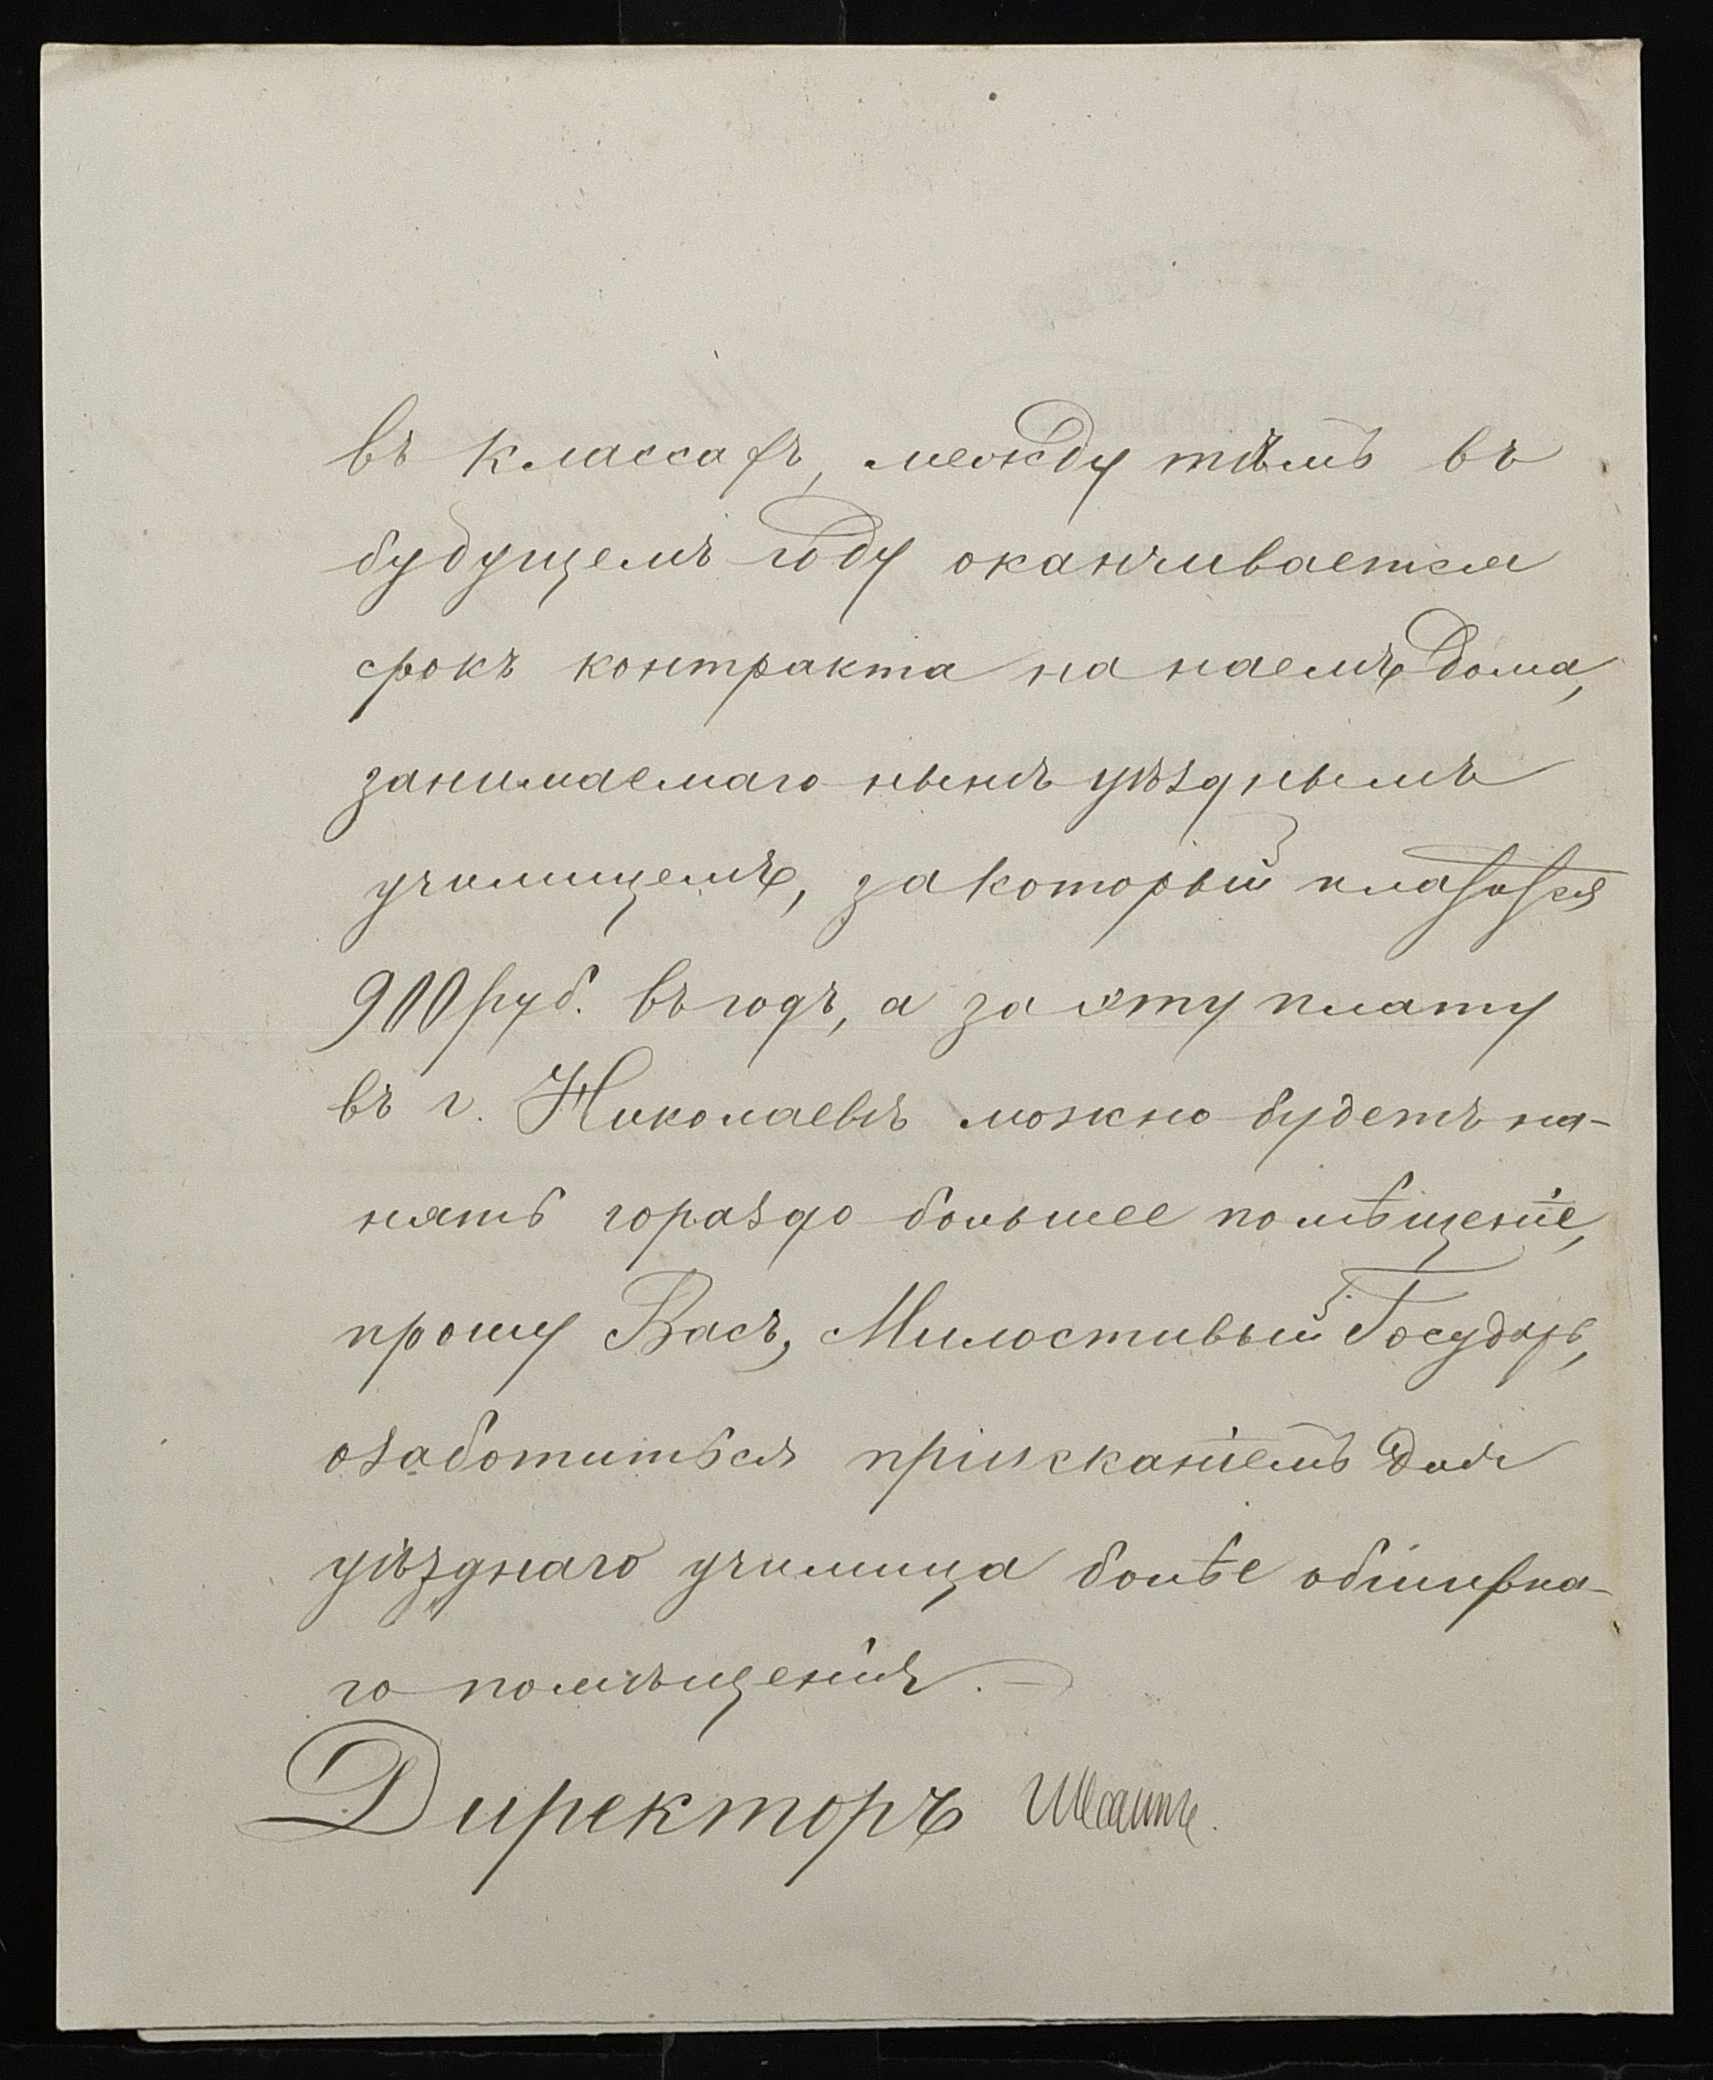 въ классахъ, между тѣмъ въ
будущемъ году оканчивается
срокъ контракта на наемъ дома,
занимаемаго нынѣ уѣзднымъ
училищемъ, за который платится
900 руб. въ годъ, а за эту плату
въ г. Николаевѣ можно будетъ на-
нять гораздо большее помѣщеніе,
прошу Васъ, Милостивый Государь,
озаботиться пріисканіемъ для
уѣзднаго училища болѣе обширна-
го помѣщенія. —
Директоръ